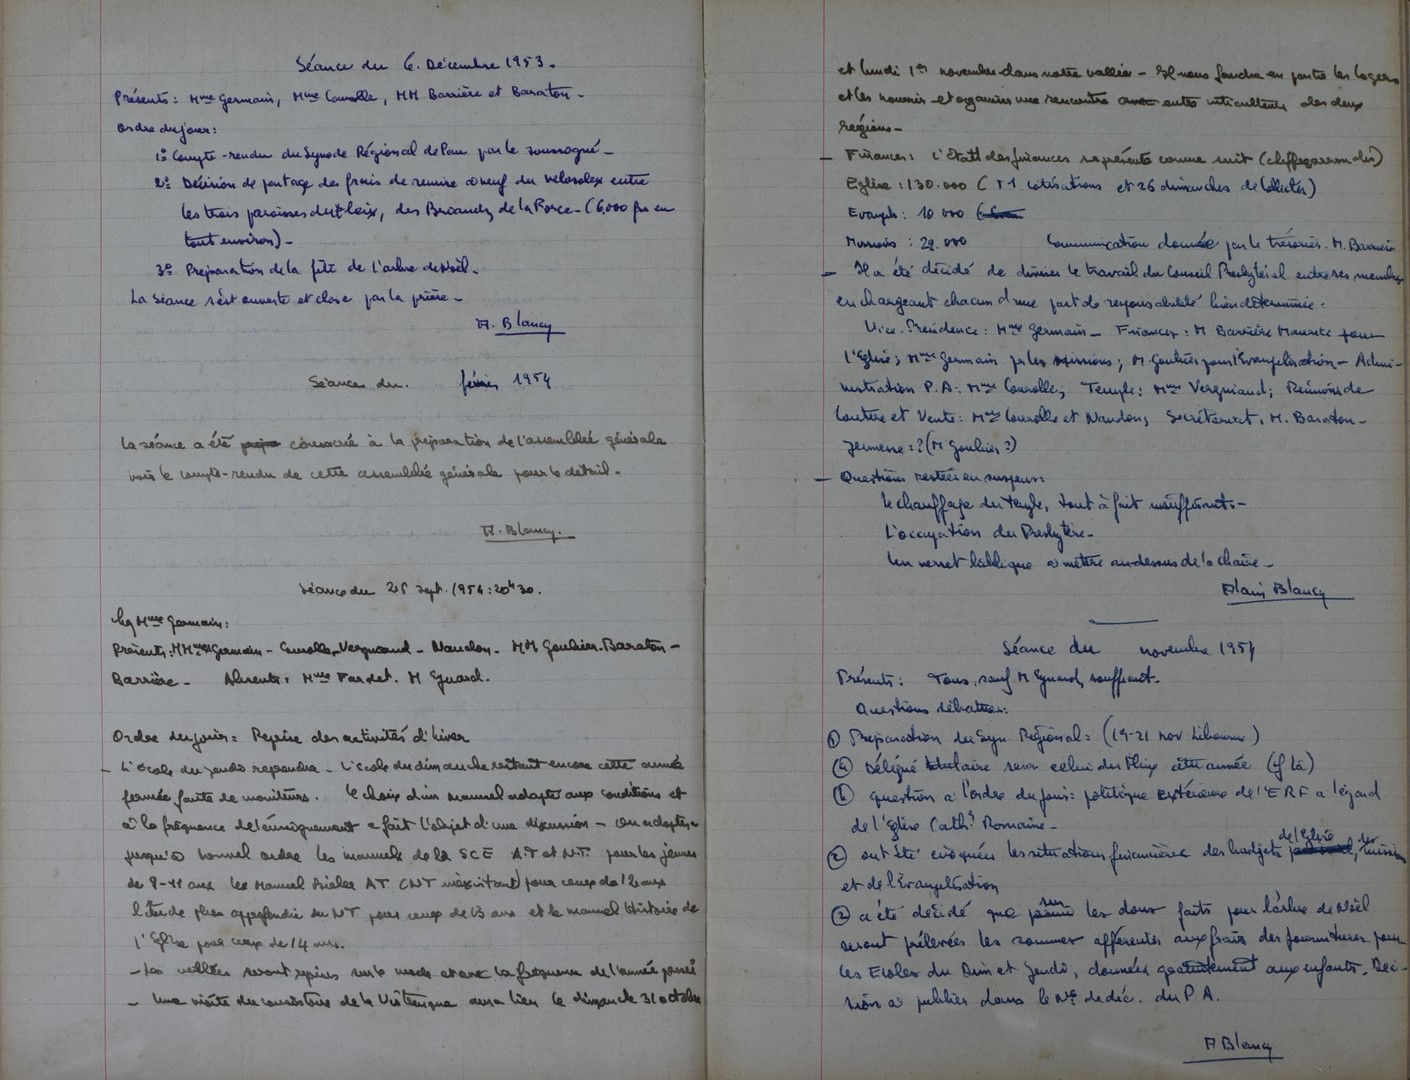 Séance du 6. Décembre 1953.
Présents: Mme Germain, Mme Courolle, MM Barrière et Baraton.
Ordre du jour:
1º Compte-rendu du Synode Régional de Pau par le soussogné -
2º Décision de partage des frais de remise à neuf du Velosolex entre
les trois paroisses du Fleix, des Briands, de la Force - (6,000 frs en
tout environ) -
3º Préparation de la fête de l'arbre de Noël.
La Séance s'est ouverte et close par la prière -
A. Blancy
Séance du. février 1954
La séance a été consacré à la préparation de l'assemblée générale
voir le compte-rendu de cette assemblée générale pour le détail.
A. Blancy.
Séance du 25 sept. 1954: 20h30.
Mme Germain:
Présents: MMmes Germain - Courolle, Vergniaud - Naudon. MM Goulier. Baraton -
Barrière. Absents: Mme M Eynard.
Ordre du jour: Reprise des activités d'hiver
- L'école du jeudi reprendra. L'école du dimanche restant encore cette année
fermée faute de moniteurs. Le choix d'un manuel adapté aux conditions et
à la fréquence de l'enseignement a fait l'objet d'une discussion - On adopte
jusqu'à nouvel ordre les manuels de la SCE A.T et N.T. pour les jeunes
de 8-11 ans les Manuel AT (NT inexistant) pour ceux de 12 ans
l'étude plus approfondie du NT pour ceux de 13 ans et le manuel Histoire de
l'Eglise pour ceux de 14 ans.
- Les veillées seront reprises sur le mode et avec la fréquence de l'année passée
- Une visite du consistoire de la aura lieu le dimanche 31 octobre
et lundi 1er novembre dans notre vallée - Il nous faudra en partie les loger
et les nourrir et organiser une rencontre entre viticulteurs des deux
régions -
- Finances: L'état des finances se présente comme suit (chiffres arrondis)
Eglise: 130.000 (51 cotisations et 26 dimanches de Collectes)
Evangel: 10 000
Missions: 29.000 Communication donnée par le trésorier. M. Barrière
- Il a été décidé de diviser le travail du Conseil Presbytéral entre ses membres
en chargeant chacun d'une part de responsabilité bien déterminée:
Vice-Présidence: Mme Germain - Finances: M Barrière Maurice pour
l'Eglise; Mme Germain pr les missions; M Goulier pour l'Evangélisation - Admi-
nistration P.A: Mme Courolle; Temple: Mme Vergniaud; Réunions de
Couture et Vente: Mme Courolle et Naudon; Secrétariat, M. Baraton -
Jeunesse: ? (M Goulier ?)
- Questions restées en suspens:
le chauffage du temple, tout à fait insuffisant -
L'occupation du Presbytère -
Un verset biblique à mettre au-dessus de la chaire -
Alain Blancy
Séance du novembre 1954
Présents: Tous, sauf M Eynard, souffrant.
Questions débattues:
① Préparation du Syn Régional: (19-21 nov Libourne)
ⓐ Délégué titulaire sera celui du Fleix cette année
ⓑ question à l'ordre du jour: politique extérieure de l'ERF à l'égard
de l'Eglise Cath. Romaine -
② ont été évoquées les situations financières des budgets de l'Eglise, des missions
et de l'Evangélisation
③ a été décidé que sur les dons faits pour l'arbre de Noël
seront prélevées les sommes afférentes aux frais des fournitures pour
les Ecoles du Dim et Jeudi, données gratuitement aux enfants. Déci-
sion à publier dans le No de déc. du P A.
A Blancy